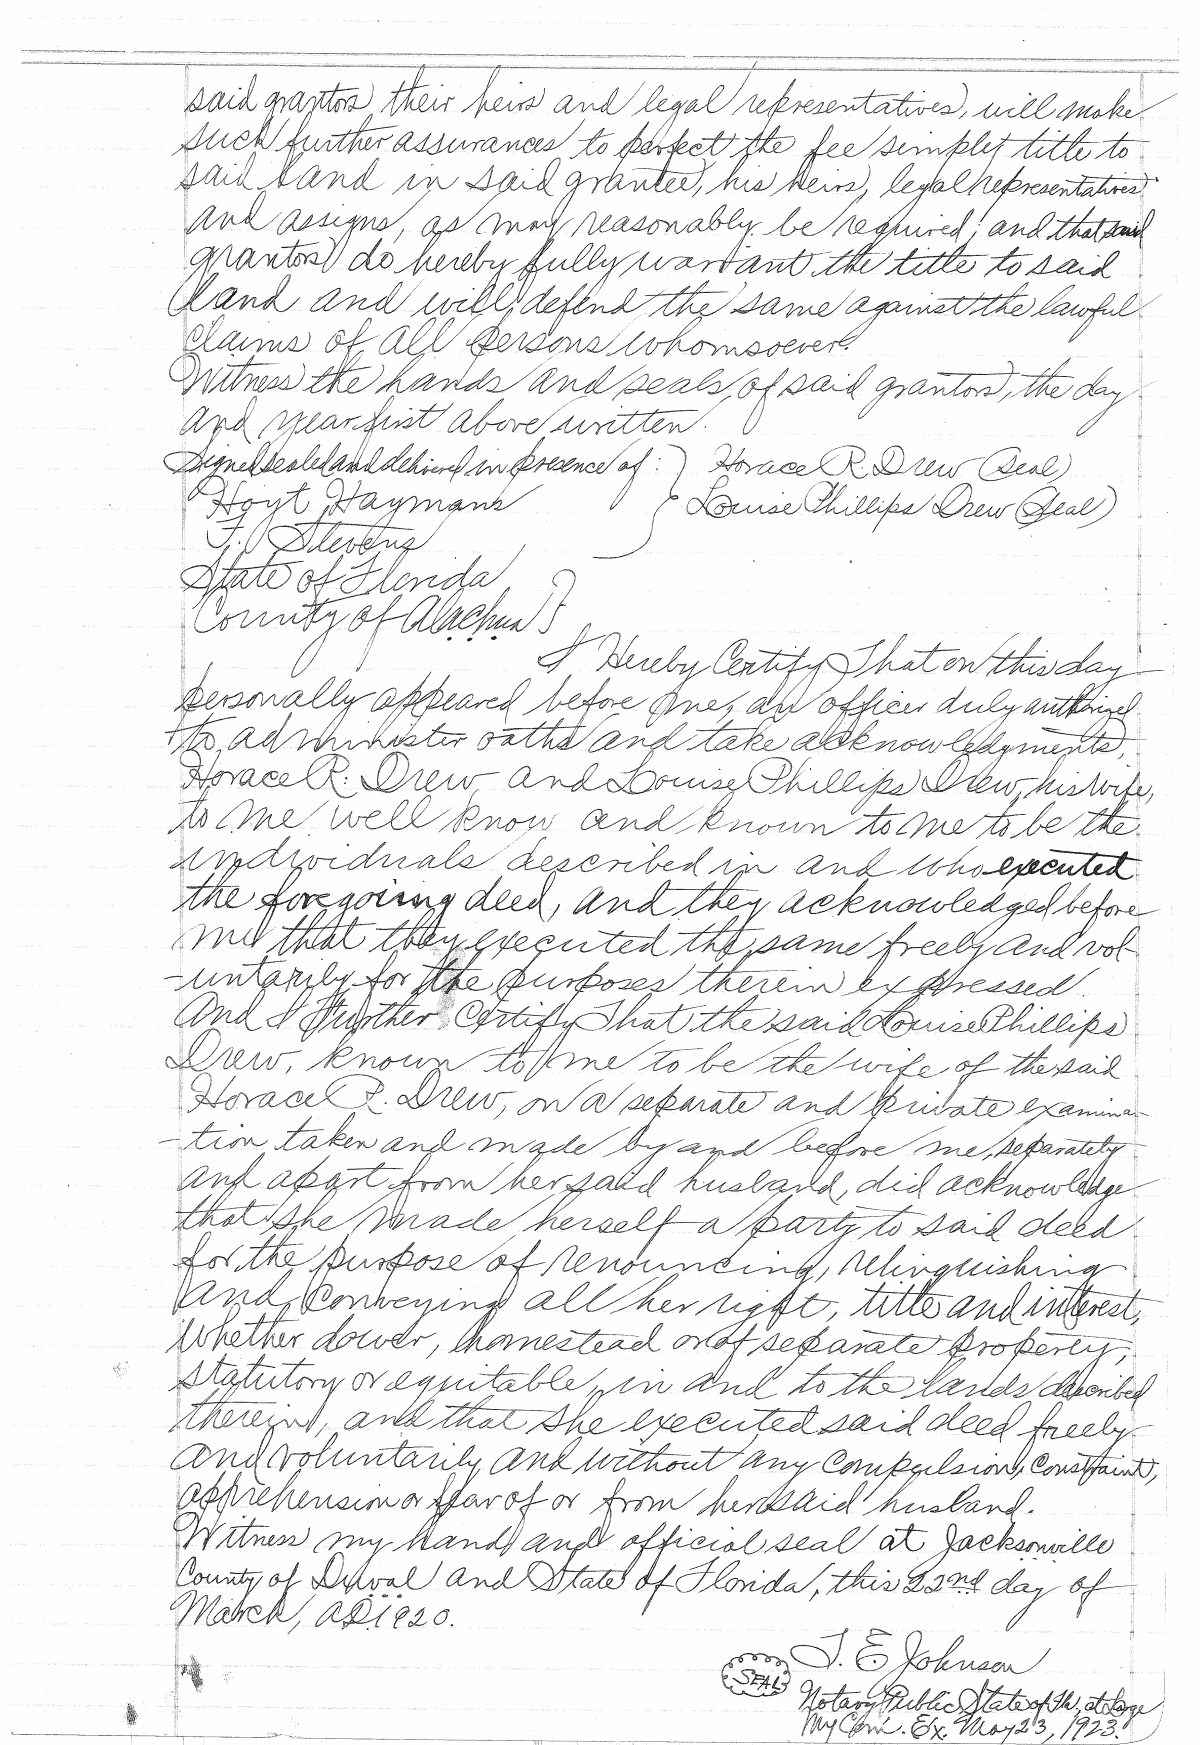 said grantors, their heirs and legal representatives, will make
such further assurances to perfect the fee simple title to
said land in said grantee, his heirs, legal representatives
and assigns, as may reasonably be required; and that said
grantors do hereby fully warrant the title to said
land and will defend the same against the lawful
claims of all persons whomsoever.
Witness the hands and seals of said grantors, the day
and year first above written.
Signed sealed and delivered in presence of: } Horace R. Drew (Seal)
Hoyt Haymans } Louise Phillips Drew (Seal)
T. Stevens
State of Florida
County of Alachua }
I Hereby Certify That on this day
personally appeared before me, an officer duly authorized
to administer oaths and take acknowledgments,
Horace R. Drew and Louise Phillips Drew, his wife,
to me well know and known to me to be the
individuals described in and who executed
the foregoing deed, and they acknowledged before
me that they executed the same freely and vol-
-untarily for the purposes therein expressed.
And I Further Certify That the said Louise Phillips
Drew, known to me to be the wife of the said
Horace R. Drew, on a separate and private examina-
-tion taken and made by and before me, separately
and apart from her said husband, did acknowledge
that she made herself a party to said deed
for the purpose of renouncing, relinquishing
and conveying all her right, title and interest,
whether dower, homestead or of separate property,
statutory or equitable, in and to the lands described
therein, and that she executed said deed freely
and voluntarily and without any compulsion, constraint,
apprehension or fear of or from her said husband.
Witness my hand and official seal at Jacksonville
County of Duval and State of Florida, this 22nd day of
March, AD. 1920.
T. E. Johnson
SEAL
Notary Public State of Fla., at Large
My Com. Ex. May 23, 1923.